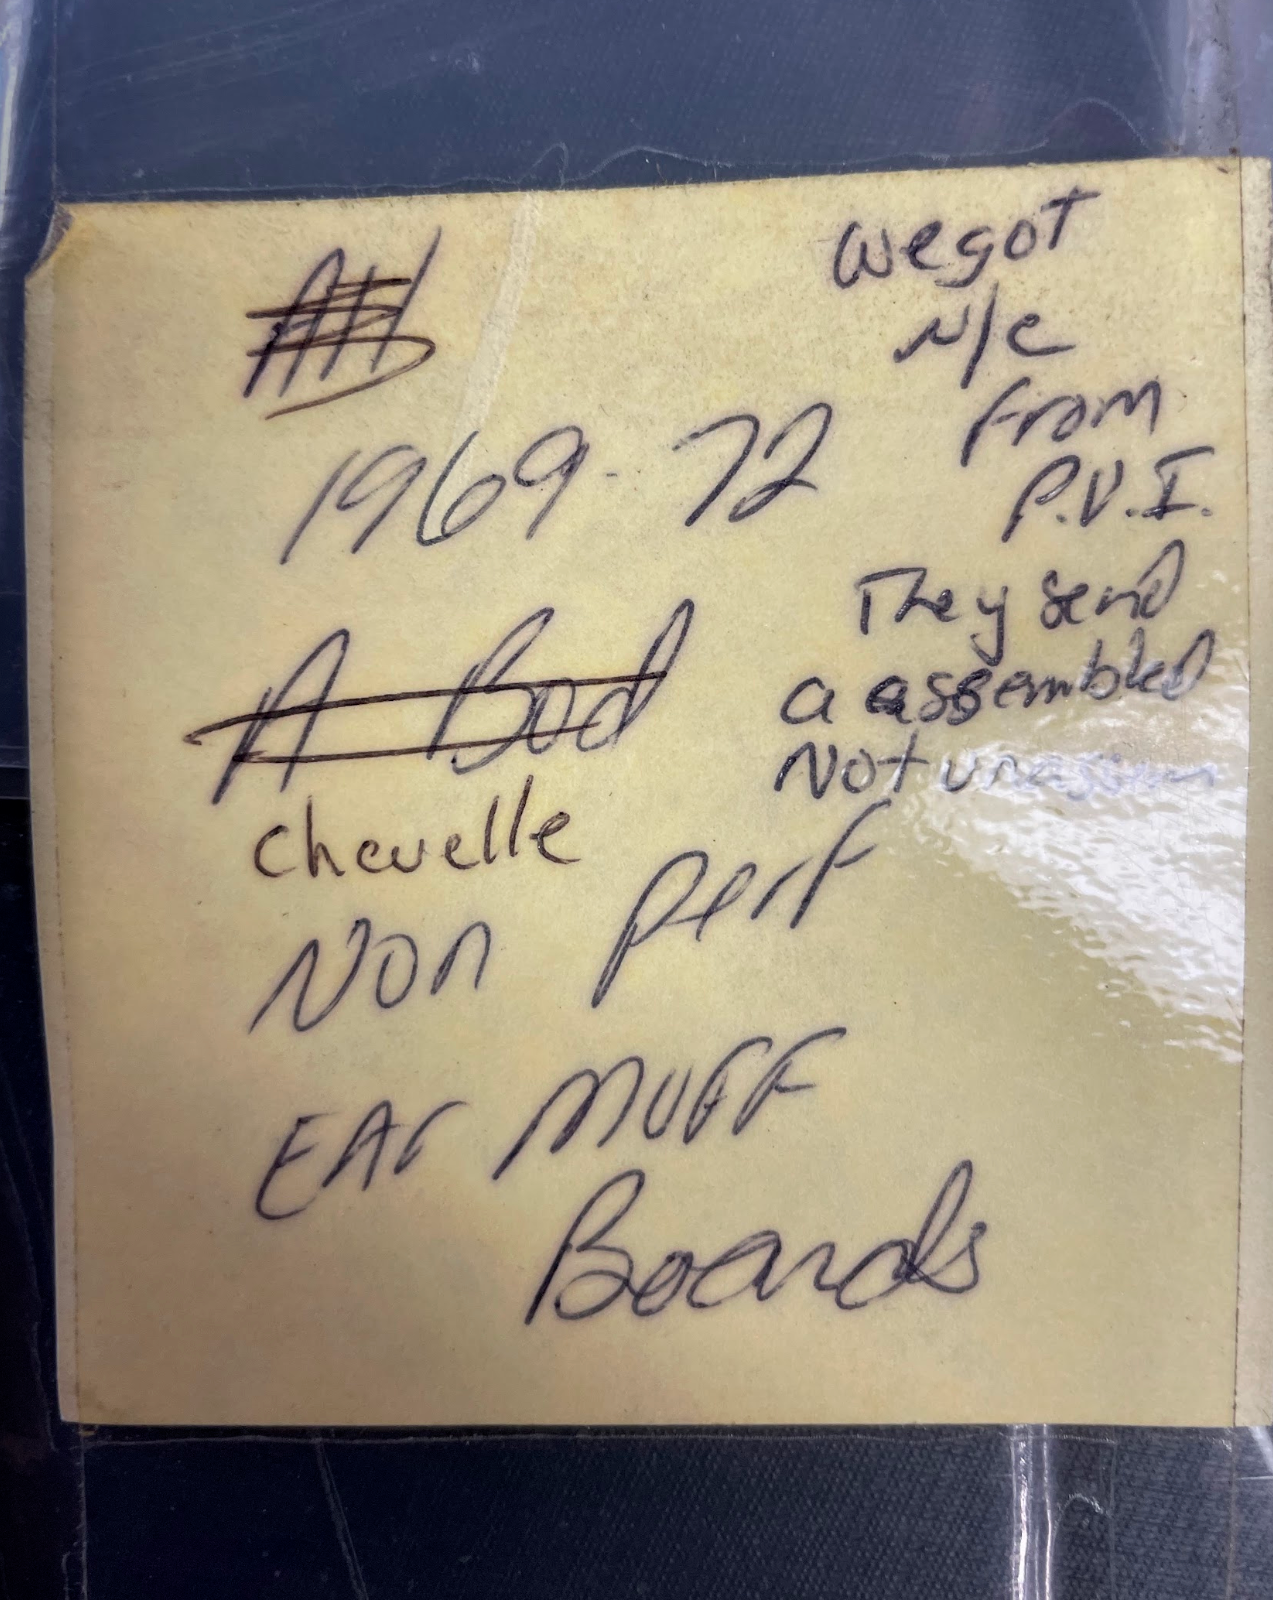 1969-72
A Bod
chevelle
Non Perf
EAr MUFF
Boards
We got
N/C
From
P.V.I.
They send
a assembled
Not unassem